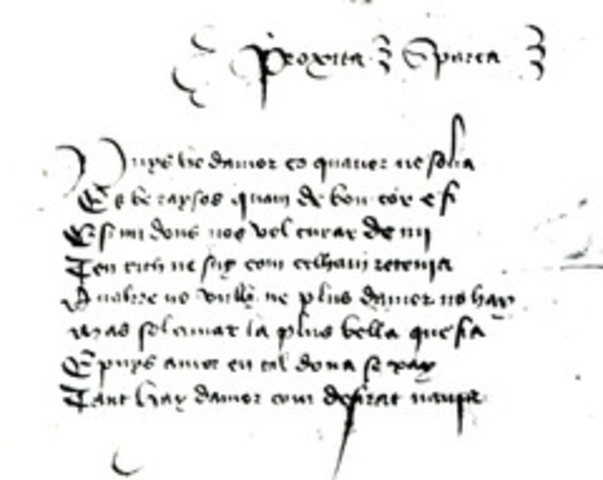 Proxita Sparça
Puys be damor ço quaver ne solia
Es be raysos quam de bon cor e fi
E si mi dons nos vol curar de mi
Ten rich ne suy com cellam retenia
Aualtre no vully ne plus damor no hay
Mas sol amar la plus bella que sia
E puys amor en tal dona se pay
Tant hay damor com desirat navya